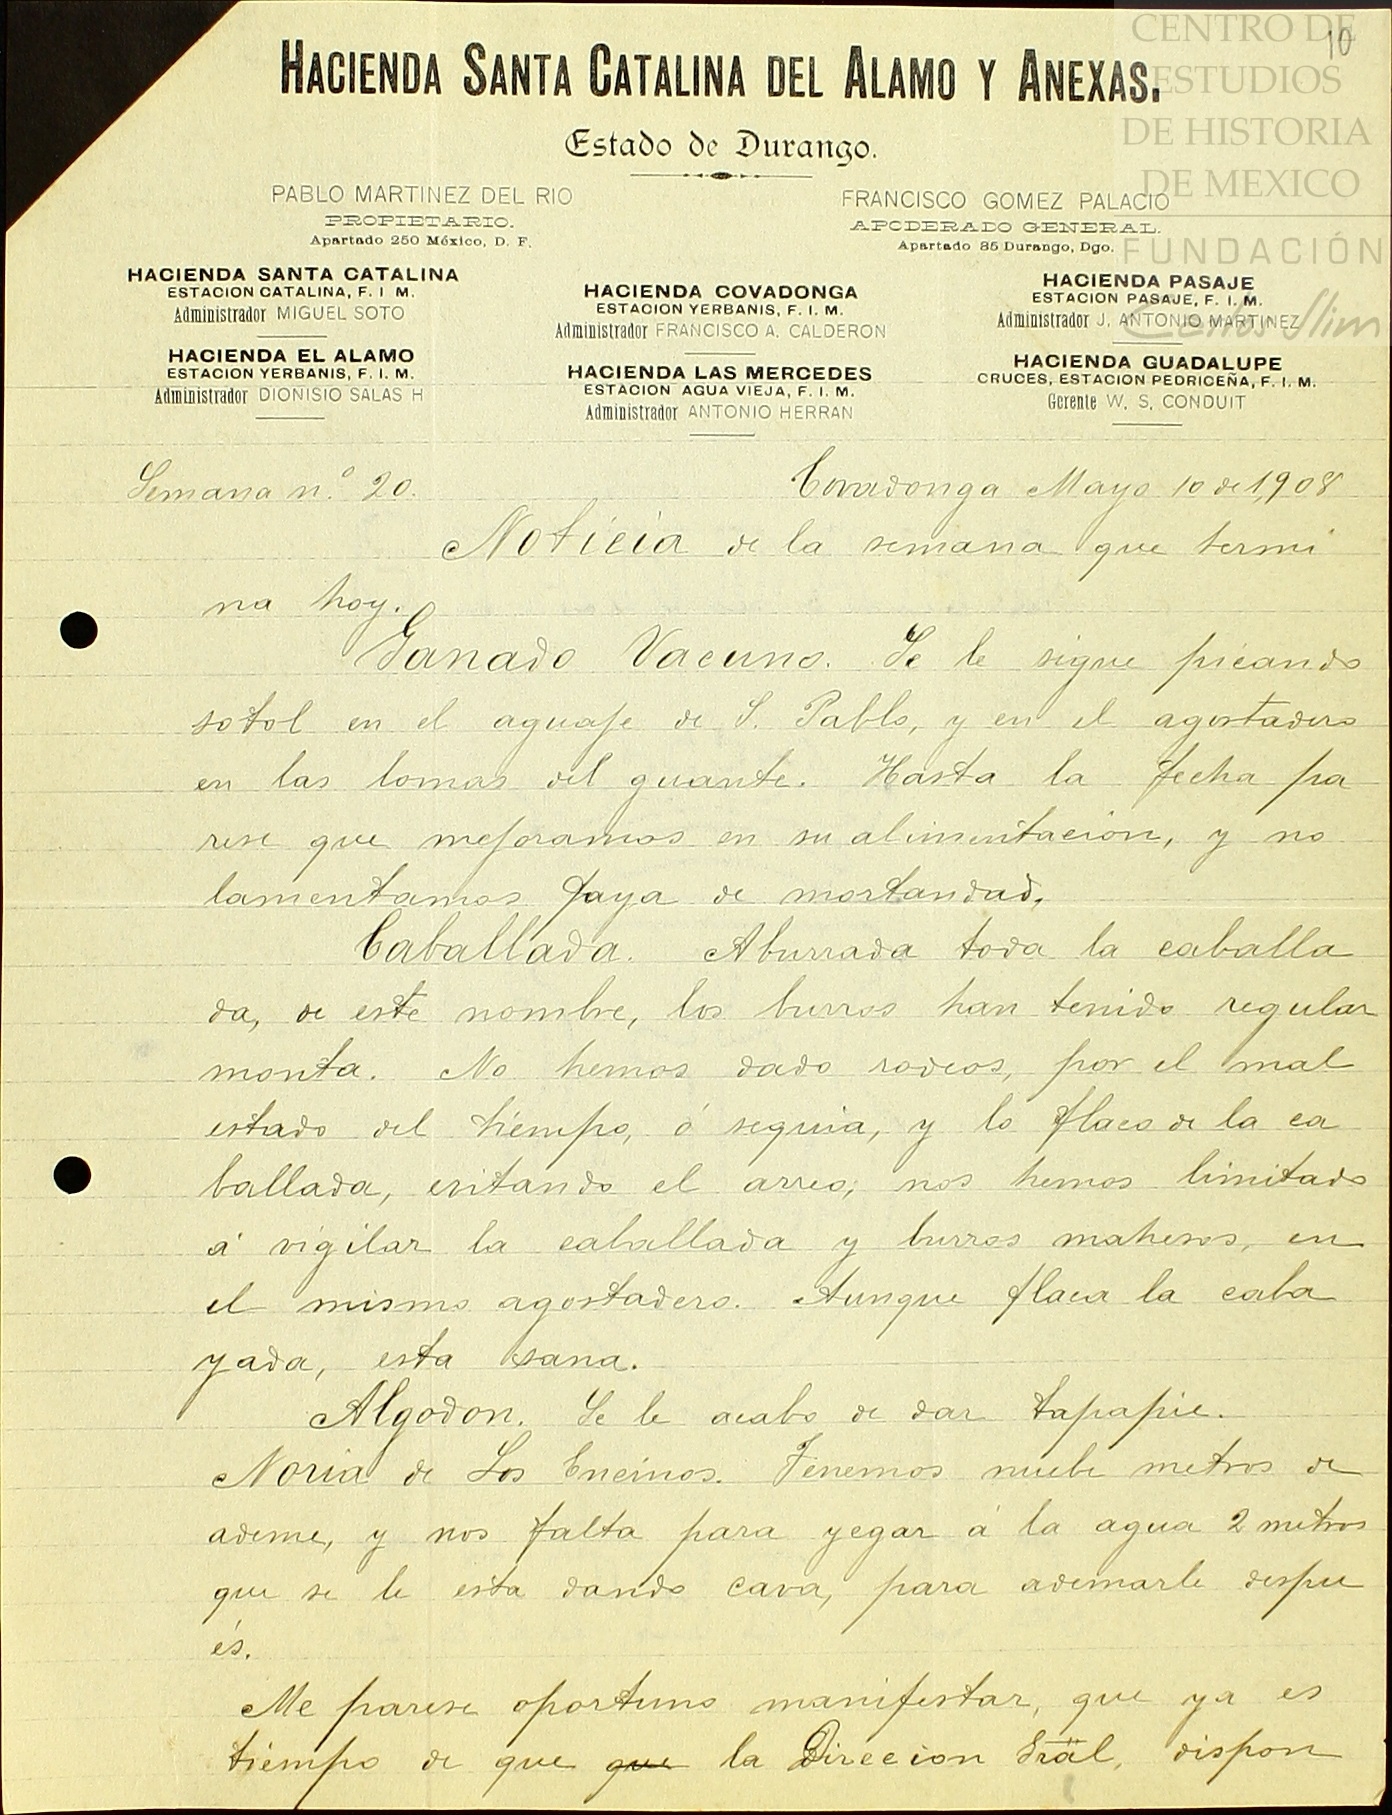 CENTRO DE
ESTUDIOS
DE HISTORIA
DE MEXICO
FUNDACIÓN
Carlos Slim
10
HACIENDA SANTA CATALINA DEL ALAMO Y ANEXAS.
Estado de Durango.
PABLO MARTINEZ DEL RIO
PROPIETARIO.
Apartado 250 México, D. F.
FRANCISCO GOMEZ PALACIO
APODERADO GENERAL.
Apartado 85 Durango, Dgo.
HACIENDA SANTA CATALINA
ESTACION CATALINA, F. I M.
Administrador MIGUEL SOTO
HACIENDA EL ALAMO
ESTACION YERBANIS, F. I. M.
Administrador DIONISIO SALAS H
HACIENDA COVADONGA
ESTACION YERBANIS, F. I. M.
Administrador FRANCISCO A. CALDERON
HACIENDA LAS MERCEDES
ESTACION AGUA VIEJA, F. I. M.
Administrador ANTONIO HERRAN
HACIENDA PASAJE
ESTACION PASAJE, F. I. M.
Administrador J. ANTONIO MARTINEZ
HACIENDA GUADALUPE
CRUCES, ESTACION PEDRICEÑA, F. I. M.
Gerente W. S. CONDUIT
Semana n.º 20.
Covadonga Mayo 10 de 1,908
Noticia de la semana que termi
na hoy.
Ganado Vacuno. Se le sigue picando
sotol en el aguaje de S. Pablo, y en el agostadero
en las lomas del guante. Hasta la fecha pa
rese que mejoramos en su alimentacion, y no
lamentamos faya de mortandad.
Caballada. Aburrada toda la caballa
da, de este nombre, los burros han tenido regular
monta. No hemos dado rodeos, por el mal
estado del tiempo, ó sequia, y lo flaco de la ca
ballada, evitando el arreo; nos hemos limitado
á vigilar la caballada y burros maheros, en
el mismo agostadero. Aunque flaca la caba
yada, esta sana.
Algodon. Se le acabo de dar tapapie.
Noria de Los Encinos. Tenemos nuebe metros de
ademe, y nos falta para yegar á la agua 2 metros
que se le esta dando cava, para ademarle despu
és.
Me parese oportuno manifestar, que ya es
tiempo de que que la Direccion Gräl, dispon